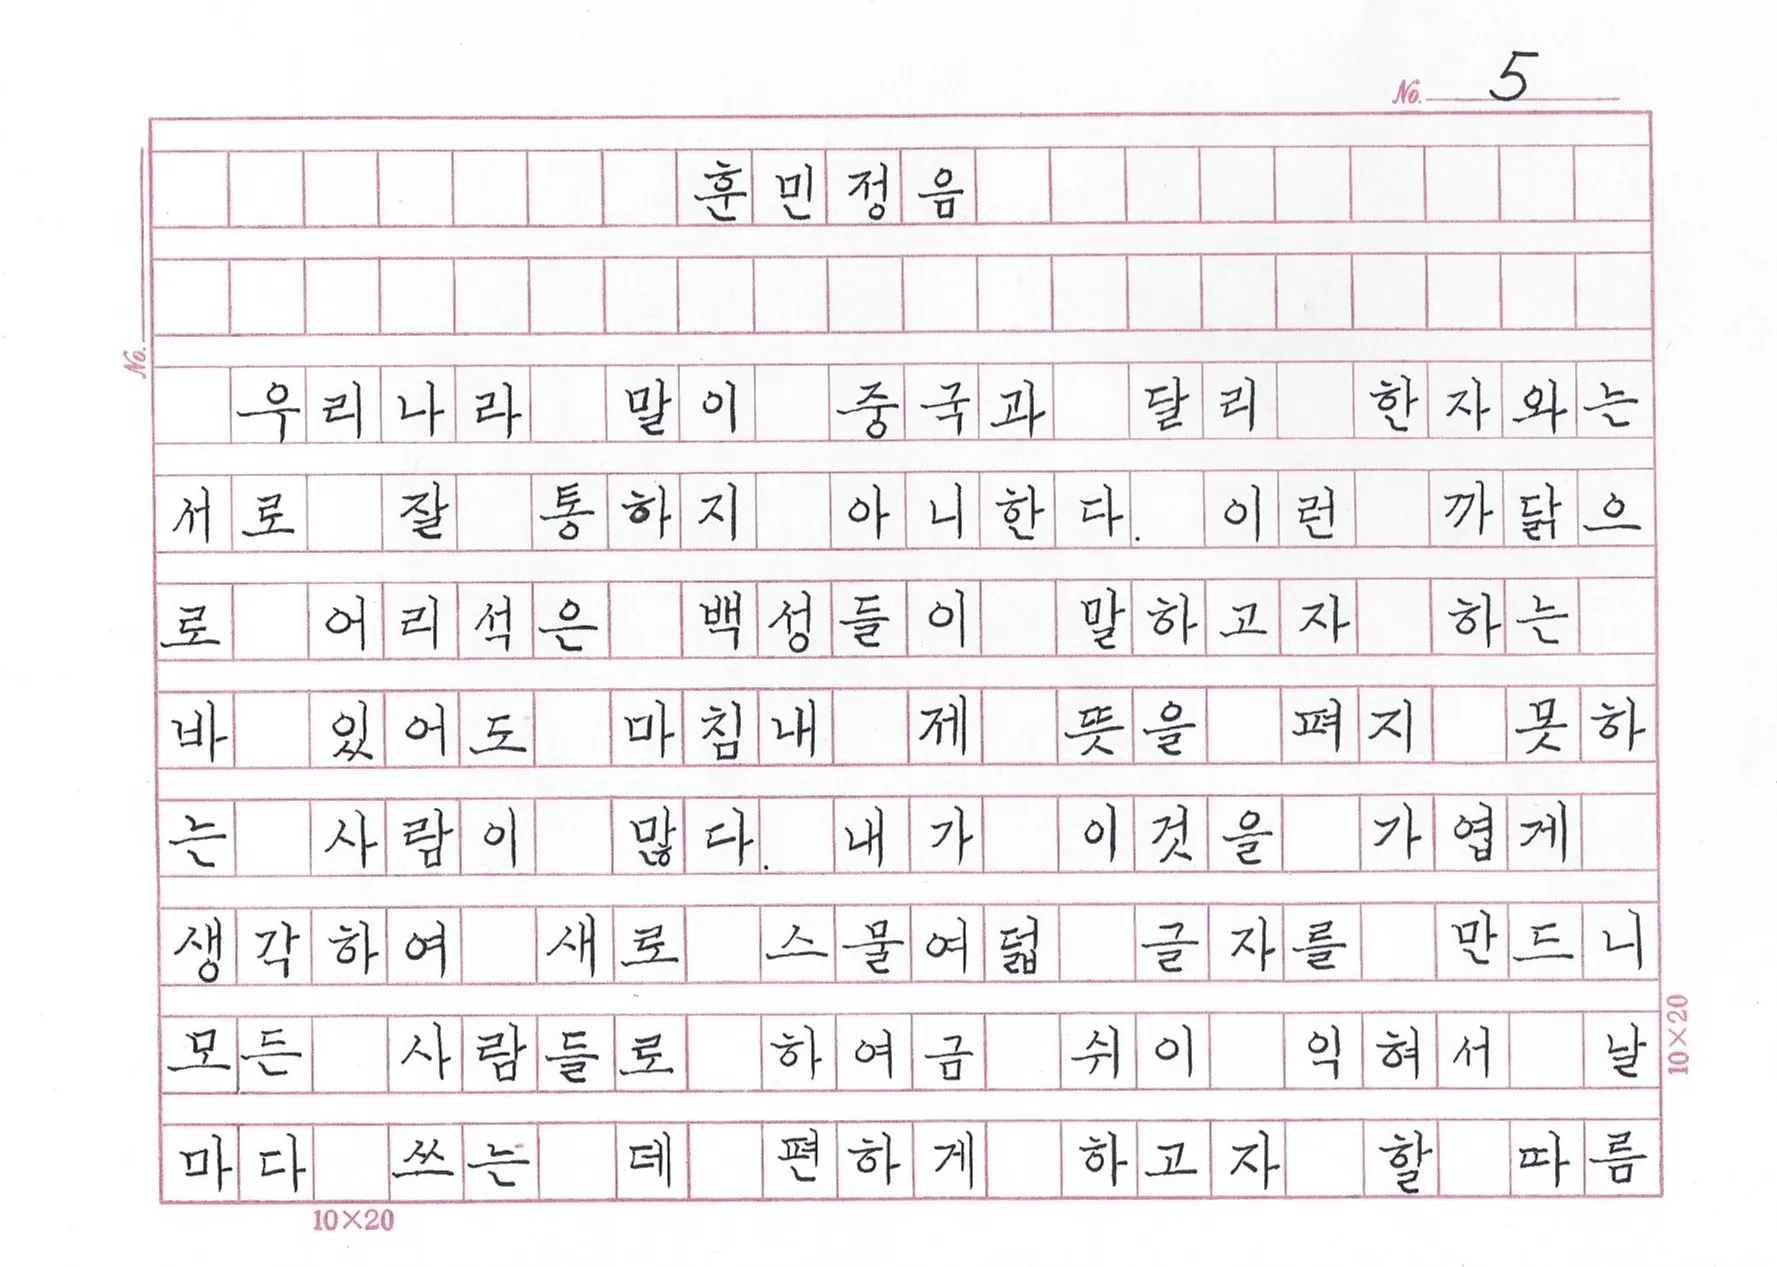 No. 5
훈민정음
우리나라 말이 중국과 달리 한자와는
서로 잘 통하지 아니한다. 이런 까닭으
로 어리석은 백성들이 말하고자 하는
바 있어도 마침내 제 뜻을 펴지 못하
는 사람이 많다. 내가 이것을 가엽게
생각하여 새로 스물여덟 글자를 만드니
모든 사람들로 하여금 쉬이 익혀서 날
마다 쓰는 데 편하게 하고자 할 따름
No.
10×20
10×20